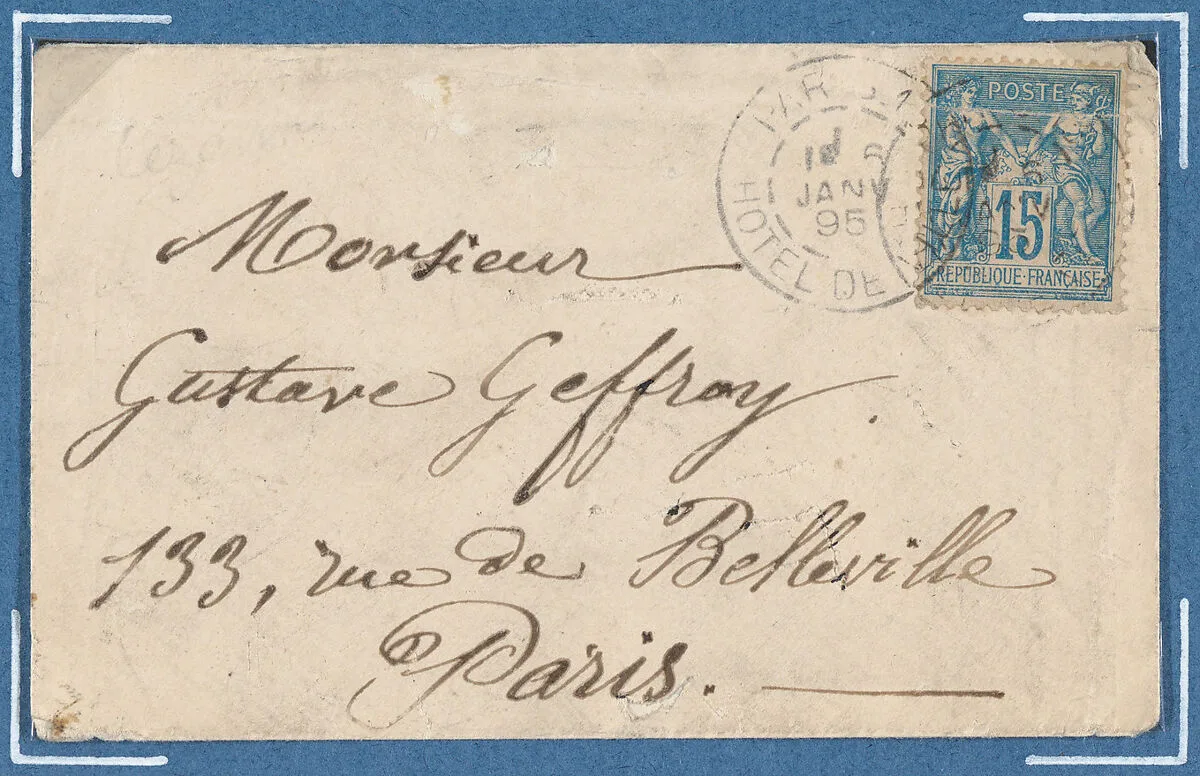 Monsieur
Gustave Geffroy.
133, rue de Belleville
Paris.
POSTE
15
REPUBLIQUE FRANÇAISE
JANV
95
HOTEL DE